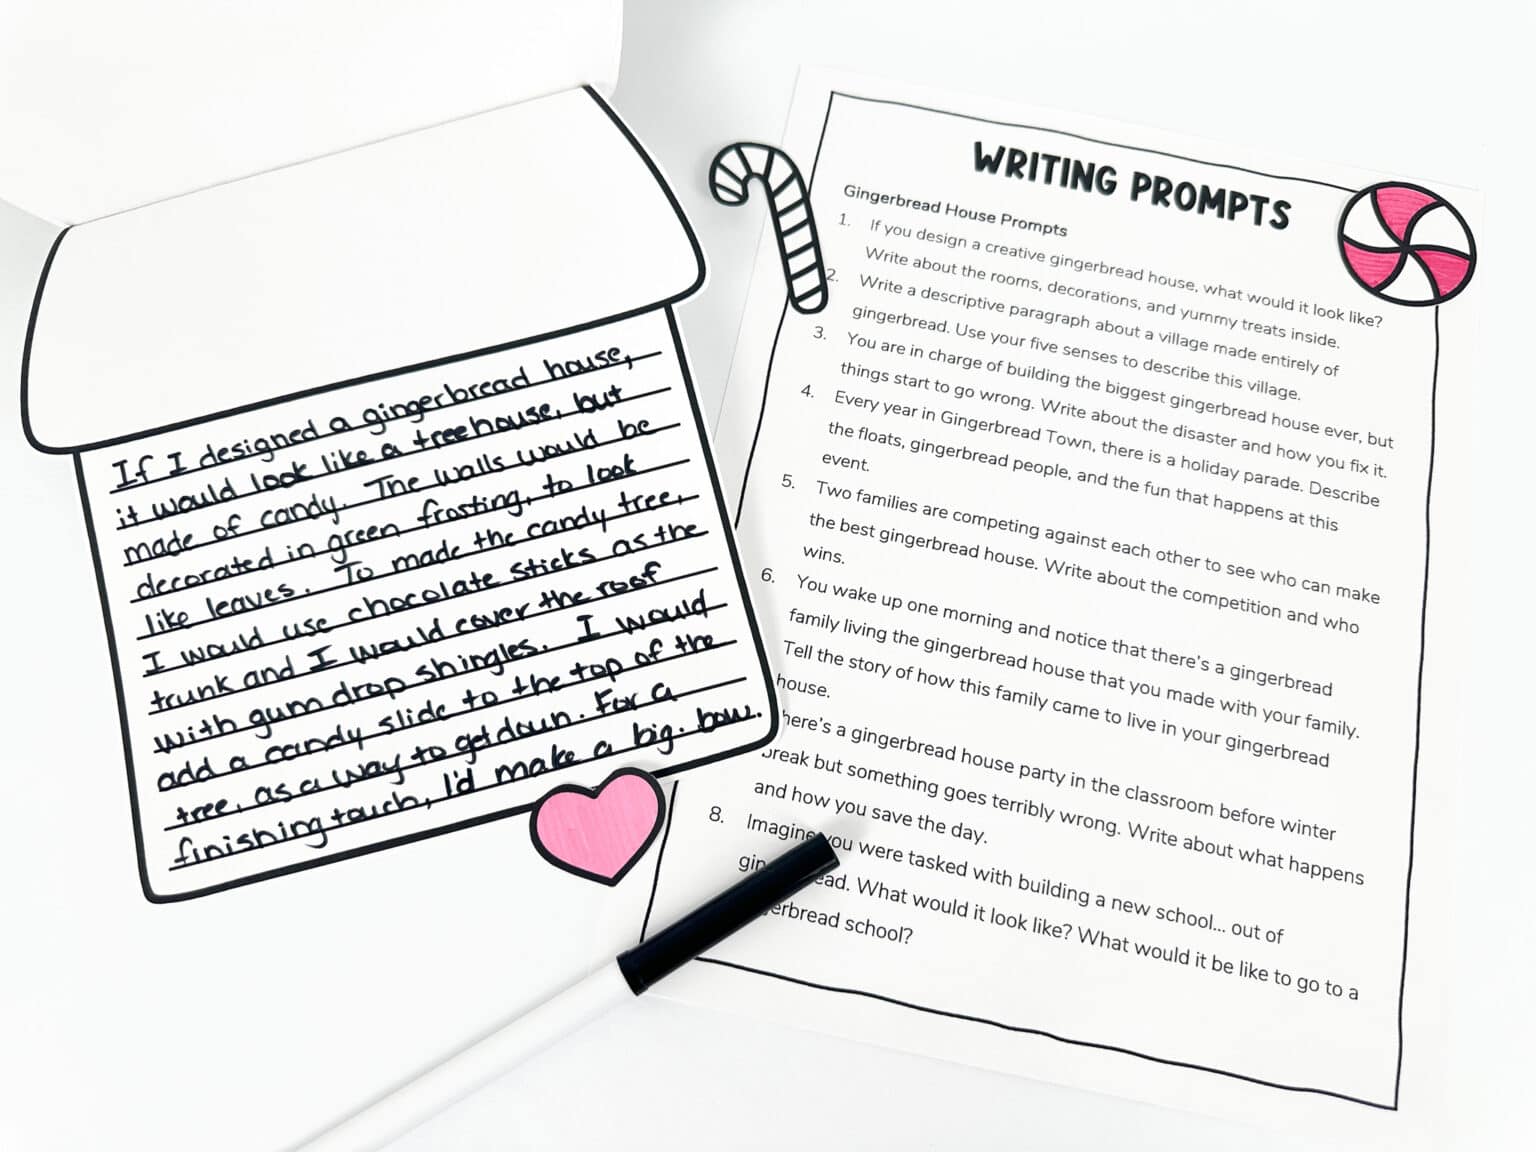 If I designed a gingerbread house,
it would look like a treehouse, but
made of candy. The walls would be
decorated in green frosting, to look
like leaves. To made the candy tree,
I would use chocolate sticks as the
trunk and I would cover the roof
with gum drop shingles. I would
add a candy slide to the top of the
tree, as a way to get down. For a
finishing touch, I'd make a big. bow.
WRITING PROMPTS
Gingerbread House Prompts
1. If you design a creative gingerbread house, what would it look like?
Write about the rooms, decorations, and yummy treats inside.
2. Write a descriptive paragraph about a village made entirely of
gingerbread. Use your five senses to describe this village.
3. You are in charge of building the biggest gingerbread house ever, but
things start to go wrong. Write about the disaster and how you fix it.
4. Every year in Gingerbread Town, there is a holiday parade. Describe
the floats, gingerbread people, and the fun that happens at this
event.
5. Two families are competing against each other to see who can make
the best gingerbread house. Write about the competition and who
wins.
6. You wake up one morning and notice that there's a gingerbread
family living the gingerbread house that you made with your family.
Tell the story of how this family came to live in your gingerbread
house.
here's a gingerbread house party in the classroom before winter
break but something goes terribly wrong. Write about what happens
and how you save the day.
8. Imagine you were tasked with building a new school... out of
ead. What would it look like? What would it be like to go to a
erbread school?